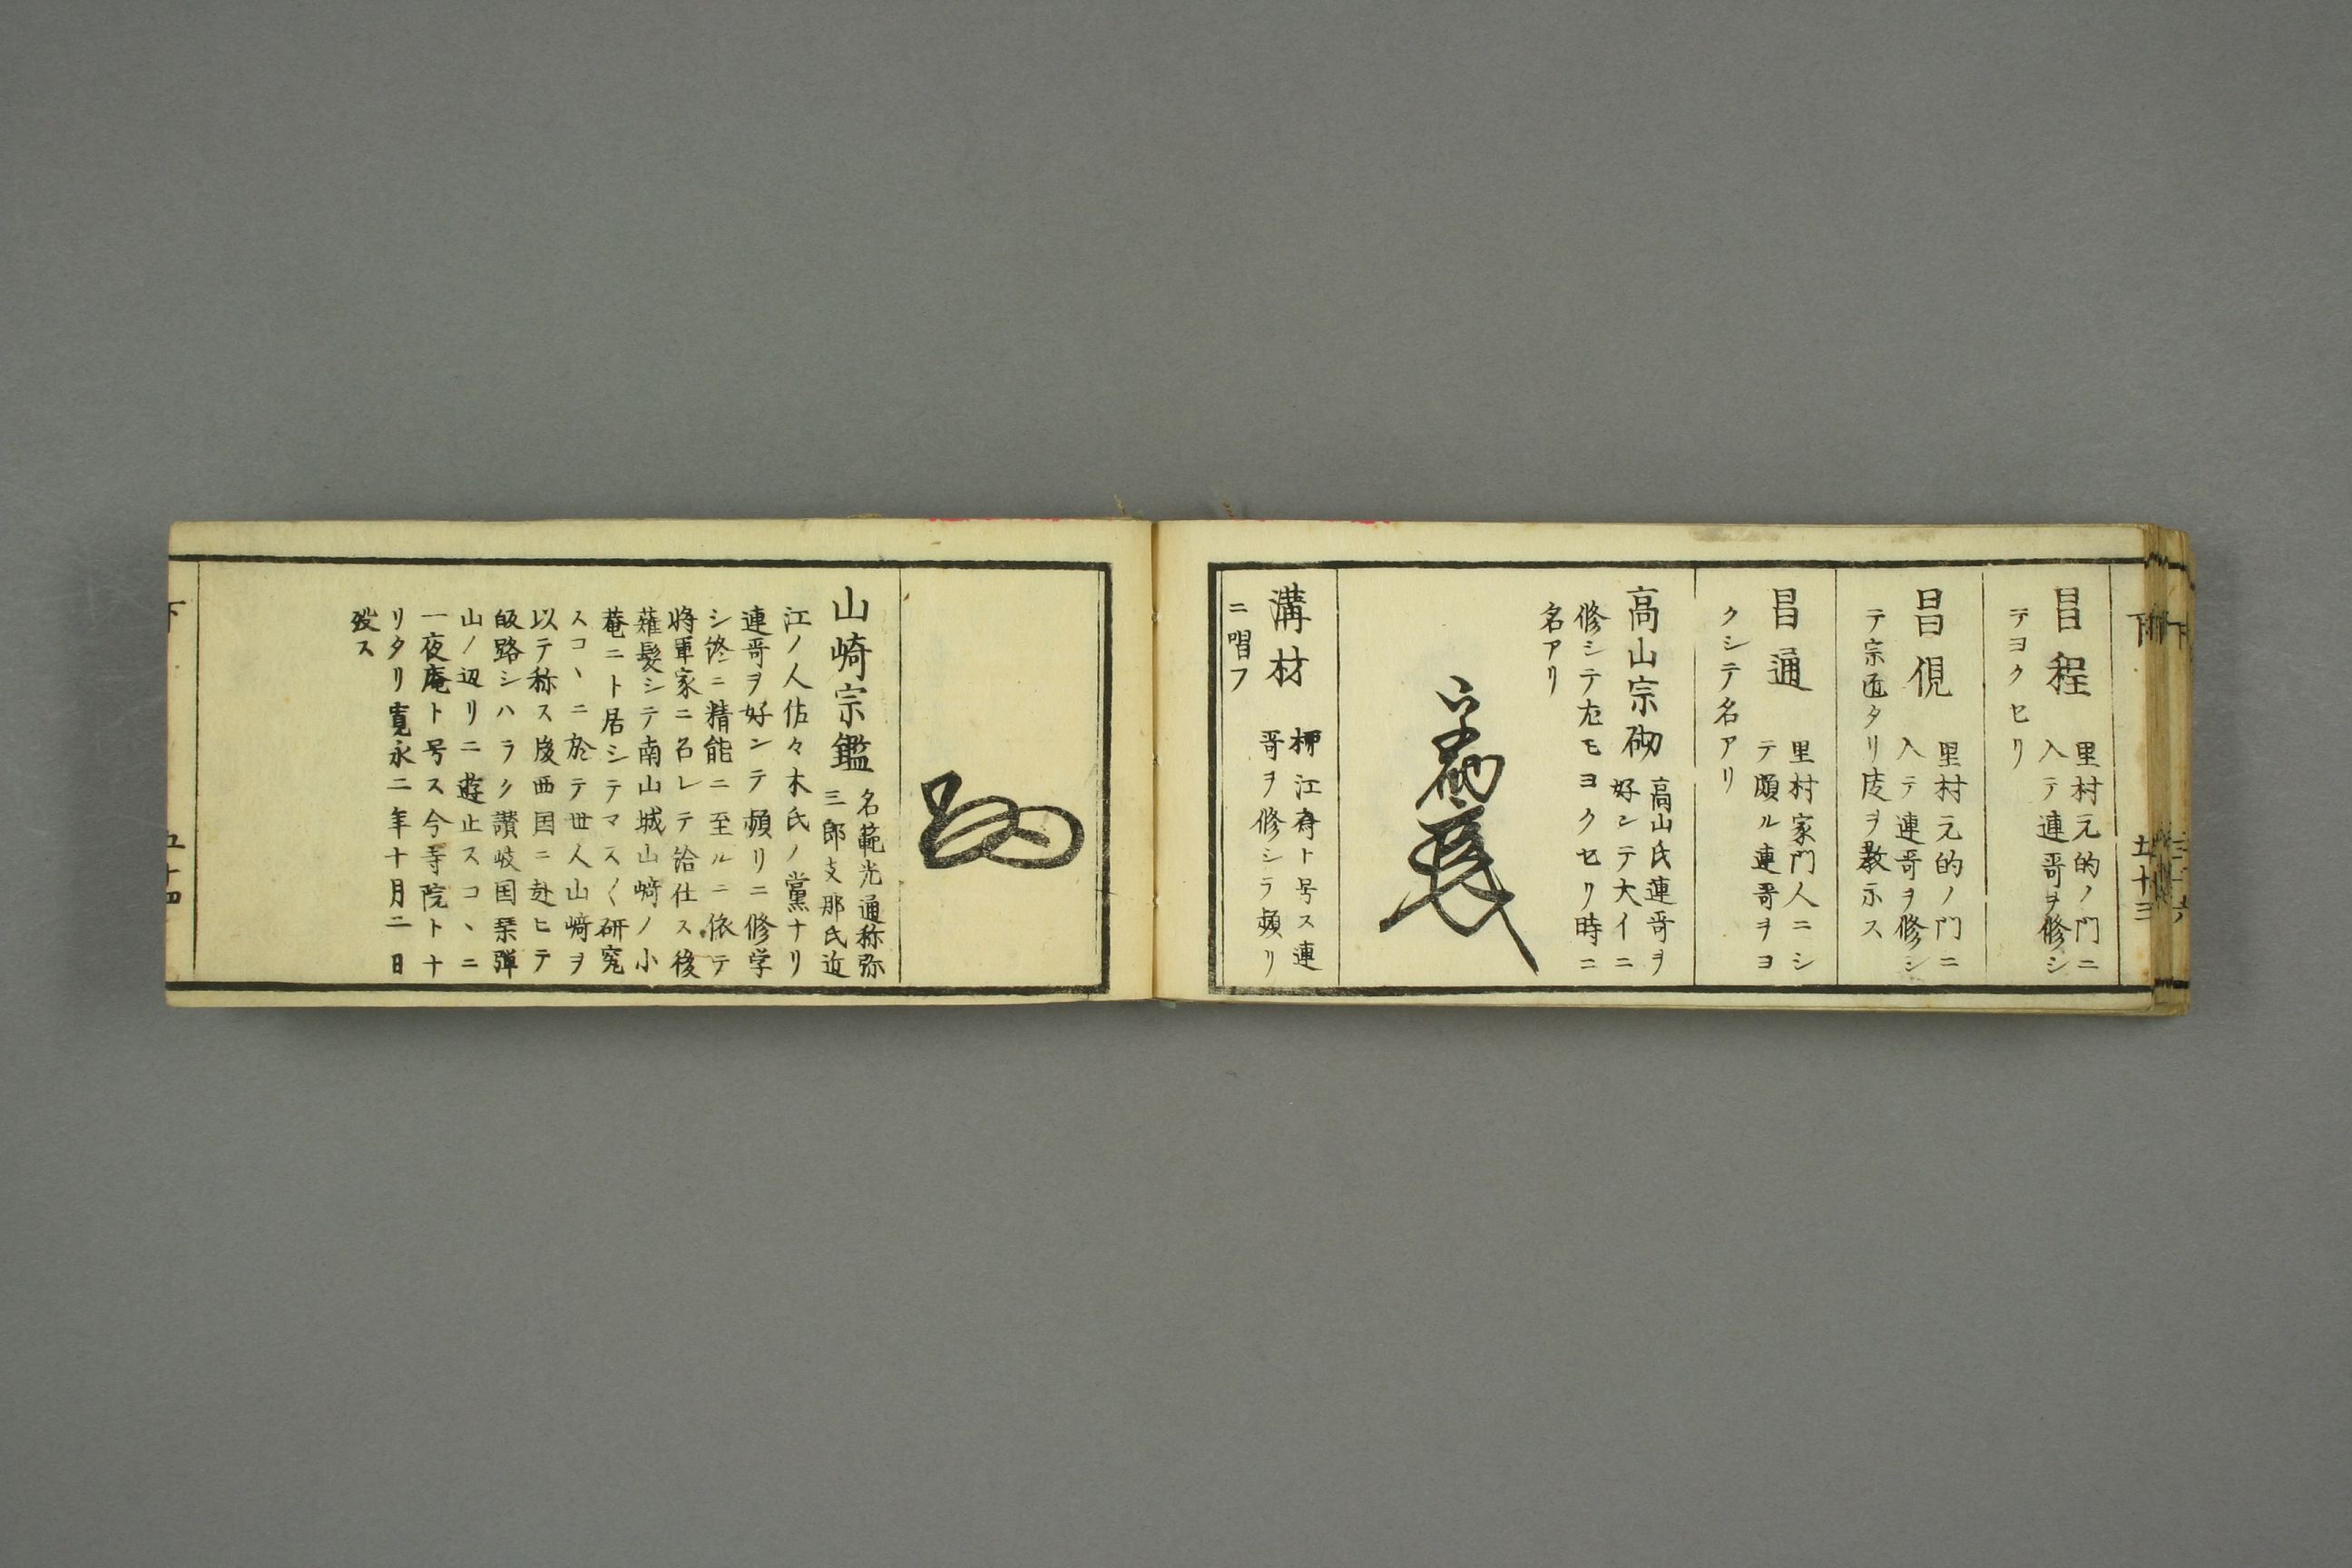 下
五十三
昌程
里村元的ノ門ニ
入テ連哥ヲ修シ
テヨクセリ
昌俔
里村元的ノ門ニ
入テ連哥ヲ修シ
テ宗匠タリ度ヲ教示ス
昌通
里村家門人ニシ
テ頗ル連哥ヲヨ
クシテ名アリ
高山宗砌
高山氏連哥ヲ
好ンテ大イニ
修シテ尤モヨクセリ時ニ
名アリ
溝杭
江府ト号ス連
哥ヲ修シラ頻リ
ニ唱フ
山崎宗鑑
名範光通称弥
三郎支那氏近
江ノ人佐々木氏ノ黨ナリ
連哥ヲ好ンテ頻リニ修学
シ終ニ精能ニ至ルニ依テ
将軍家ニ召レテ給仕ス後
薙髪シテ南山城山崎ノ小
菴ニト居シテマス〱研究
スコヽニ於テ世人山崎ヲ
以テ称ス後西国ニ赴ヒテ
皈路シハラク讃岐国琴弾
山ノ辺リニ遊止スコヽニ
一夜庵ト号ス今寺院トナ
リタリ寛永二年十月二日
歿ス
下
五十四